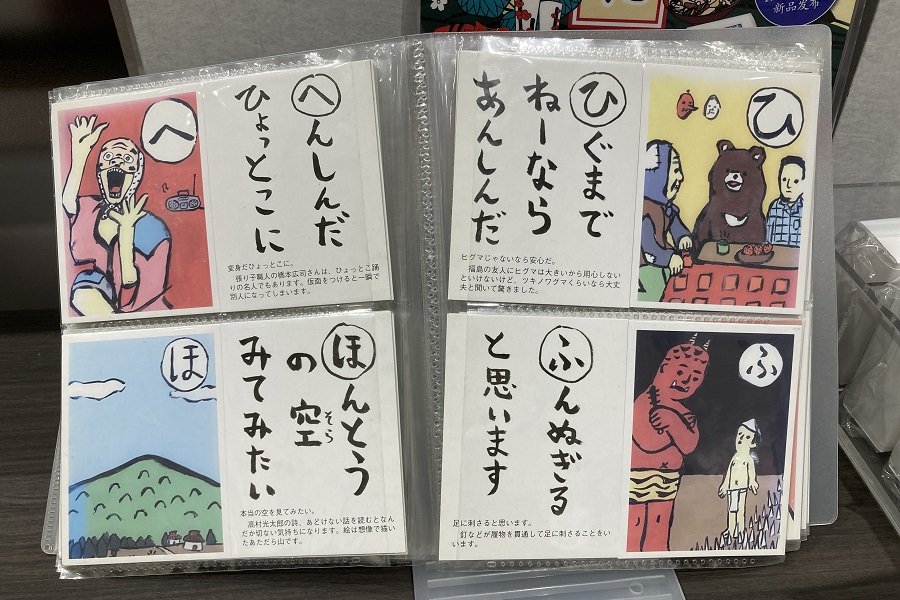 新品发布
へ
へんしんだ
ひょっとこに
変身だひょっとこに。
張り子職人の橋本広司さんは、ひょっとこ踊
りの名人でもあります。仮面をつけると一瞬で
別人になってしまいます。
ひぐまで
ねーなら
あんしんだ
ヒグマじゃないなら安心だ。
福島の友人にヒグマは大きいから用心しない
といけないけど、ツキノワグマくらいなら大丈
夫と聞いて驚きました。
ひ
ほ
ほんとう
の空
そら
みてみたい
本当の空を見てみたい。
高村光太郎の詩、あどけない話を読むとなん
だか切ない気持ちになります。絵は想像で描い
たあだたら山です。
ふんぬぎる
と思います
足に刺さると思います。
釘などが履物を貫通して足に刺さることをい
います。
ふ